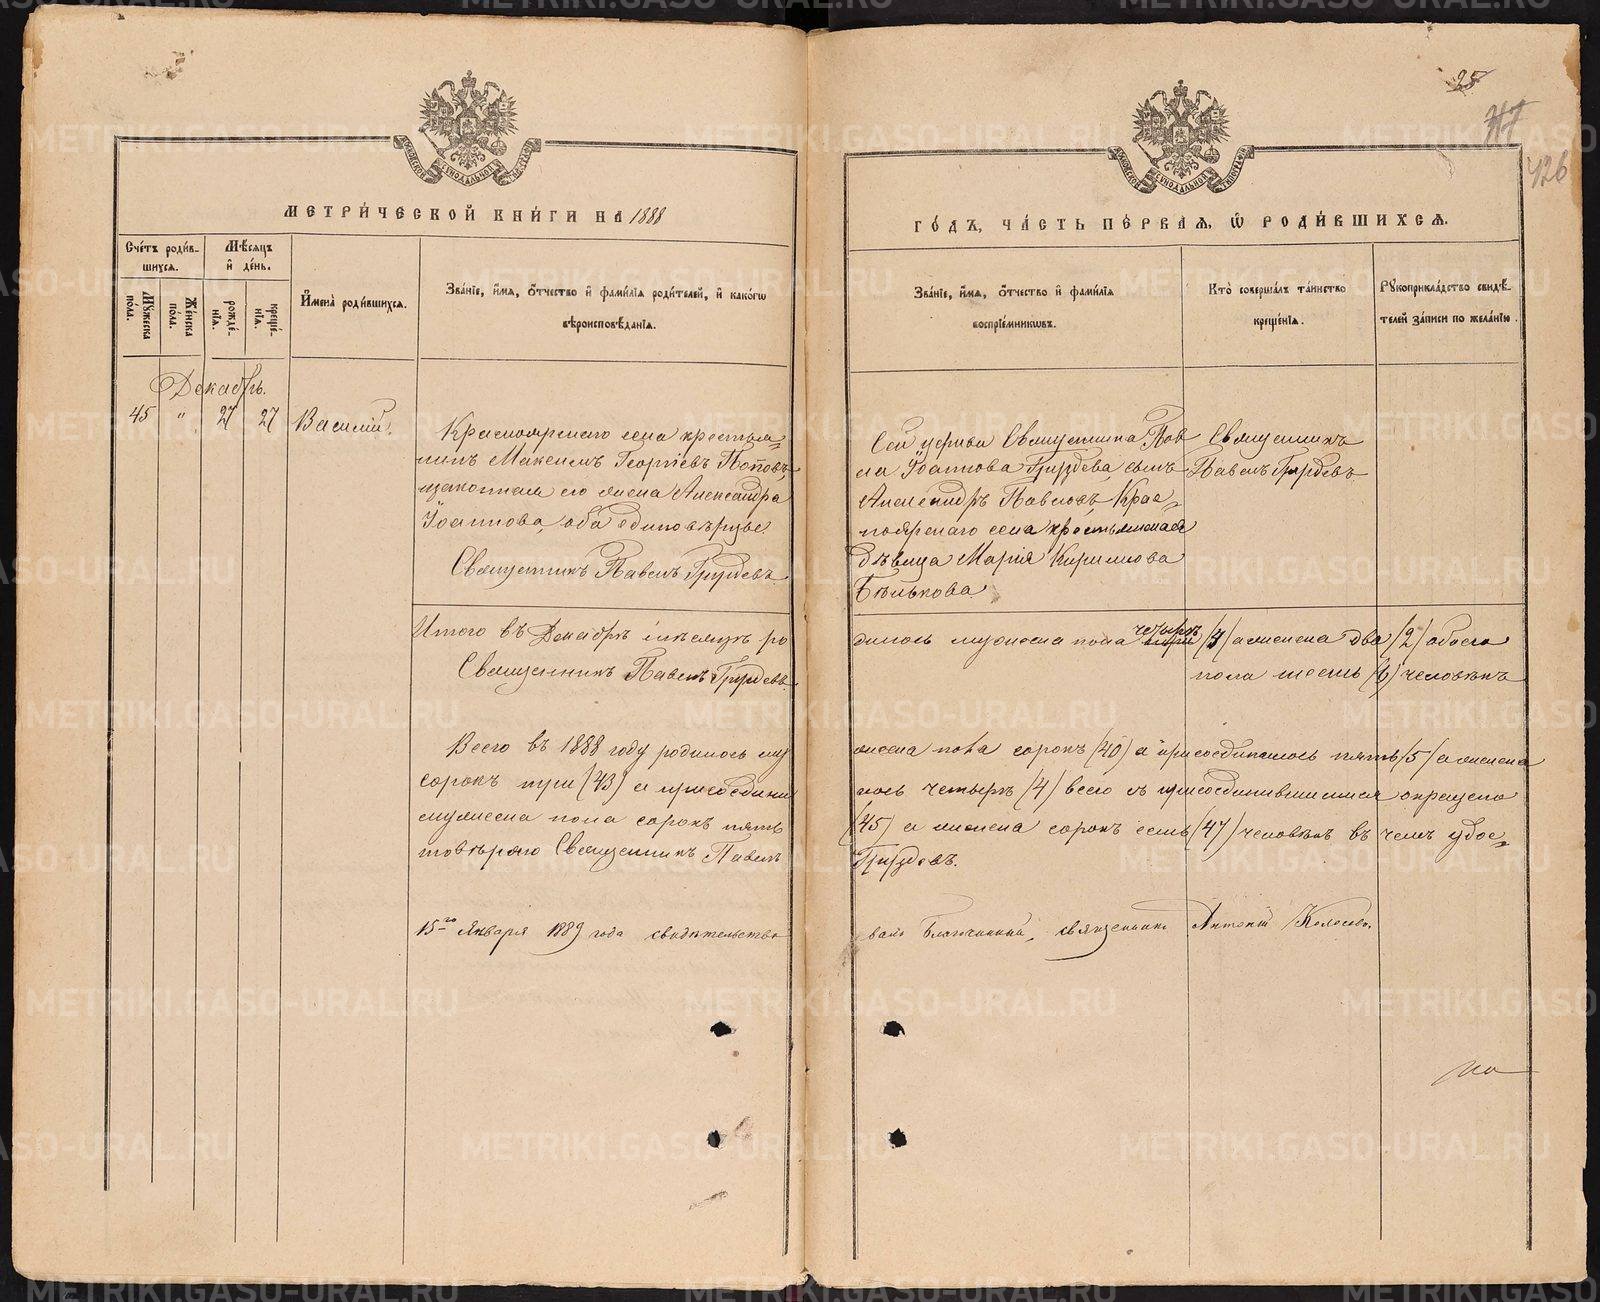 25
47
426
МЕТРИ́ЧЕСКОЙ КНИ́ГИ НА 1888
ГО́ДЪ, ЧА́СТЬ ПЕ́РВАЯ, Ѡ҆ РОДИ́ВШИХСЯ.
Сче́тъ роди́в-
шихся.
Му́жеска по́ла.
Же́нска по́ла.
Мѣ́сяцъ
и҆ де́нь.
рожде́-
нія.
креще́-
нія.
И҆мена̀ роди́вшихся.
Зва́ніе, и҆́мя, ѻ҆́тчество и҆ фами́лія роди́телей, и҆ како́гѡ
вѣроисповѣ́данія.
Зва́ніе, и҆́мя, ѻ҆́тчество и҆ фами́лія
воспріе́мникѡвъ.
Кто̀ соверша́лъ та́инство
креще́нія.
Рꙋкоприкла́дство свидѣ́-
телей за́писи по жела́нію.
Декабрь.
45 " 27 27 Василій.
Красноярскаго села крестья-
нинъ Максимъ Георгіевъ Поповъ,
и законная его жена Александра
Іоаннова, оба единовѣрцы.
Священникъ Павелъ Груздевъ
Сей церкви Священника Пав
ла Іоаннова Груздева, сынъ
Александръ Павловъ, Крас-
ноярскаго села крестьянская
дѣвица Марія Кирилова
Бѣлькова.
Священникъ
Павелъ Груздевъ
Итого въ Декабрѣ мѣсяцѣ ро
дилось мужеска пола четыре (4) а женска два (2) обоего
Священникъ Павелъ Груздевъ
пола шесть (6) человѣкъ
Всего въ 1888 году родилось му
жеска пола сорокъ (40) а присоединилось пять (5) а женска
сорокъ три (43) а присоедини
лось четыре (4) всего съ присоединившимися окрещено
мужеска пола сорокъ пять
(45) а женска сорокъ семь (47) человѣкъ въ чемъ удос-
товѣряю Священникъ Павелъ
Груздевъ.
15го Января 1889 года свидѣтельство
валъ Благочинный, священникъ Антоній Колосовъ.